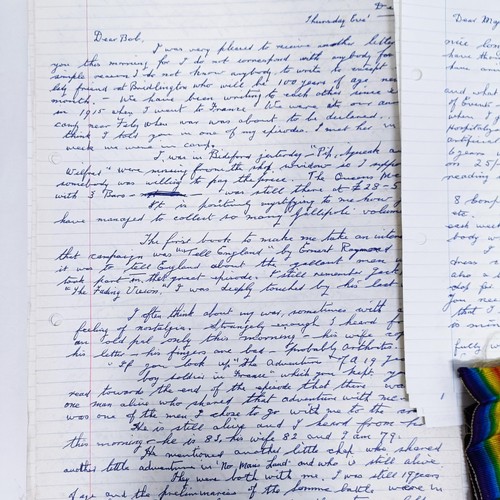 De
Thursday Eve'
Dear Bob,
I was very pleased to receive another letter
you this morning for I do not correspond with anybody for
simple reason I do not know anybody to write to except
lady friend at Budlington who will be 100 years of age nex
month. - We have been writing to each other since e
in 1915 when I went to France. We were at our ann
camp near Felix when war was about to be declared...
think I told you in one of my episodes. I met her in
week we were in camp.
I was in Bideford yesterday "Pip, Squeak an
Wilfred" were missing from the shop window so I suppo
somebody was willing to pay the price. The Queens Me
with 3 Bars - I was still there at £28-5
It is positively mystifying to me how y
have managed to collect so many Gallipoli volume
The first book to make me take an intere
that campaign was "Tell England" by Ernest Raymond
it was to tell England about the gallant men w
took part in that great episode. I still remember
"The Fading Vision." I was deeply touched by his last
I often think about my war, sometimes with a
feeling of nostalgia. Strangely enough I heard fr
an old pal only this morning - his wife
his letter - his fingers are bad - probably Arthritis.
"If you look up "The Adventure" of A 19 y
boy soldier in France" which you kept, yo
read towards the end of the episode that there wa
one man alive who shared that adventure with me
was one of the men I chose to go with me to the
He is still alive and I heard from h
this morning - he is 83, his wife 82 and I am 79.
He mentioned another little chap who shared
another little adventure in "No Mans Land" and who is still alive.
They were both with me, I was still 19 years
of age and the preliminaries of the Somme battle were
Dear My
nice lon
have thori
have an
and what
of Events
when I
Hospitals
antiprise
6 years
on 25/
reading
8 Comp
etc.
each west
body w
I
dress n
also a
shop for
You ne
that I
is min
fully w
1